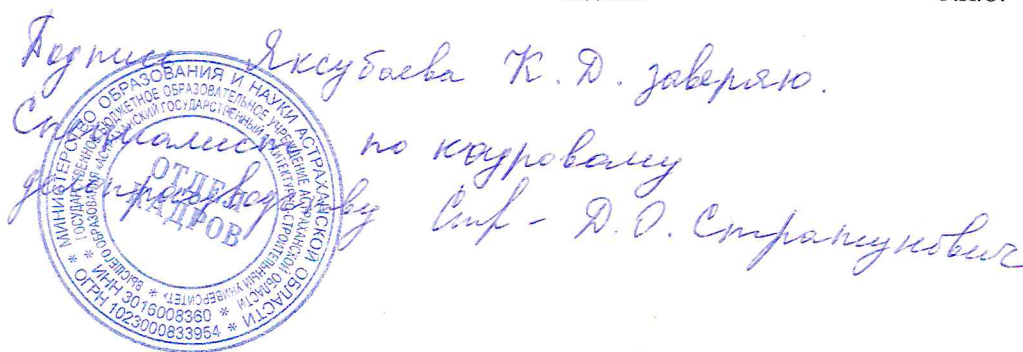 Подпись Яксубаева К. Д. заверяю.
Специалист по кадровому
делопроизводству Стр – Д. О. Страшунович
МИНИСТЕРСТВО ОБРАЗОВАНИЯ И НАУКИ АСТРАХАНСКОЙ ОБЛАСТИ
* ОГРН 1023000833954 *
ГОСУДАРСТВЕННОЕ БЮДЖЕТНОЕ ОБРАЗОВАТЕЛЬНОЕ УЧРЕЖДЕНИЕ АСТРАХАНСКОЙ ОБЛАСТИ
ВЫСШЕГО ОБРАЗОВАНИЯ «АСТРАХАНСКИЙ ГОСУДАРСТВЕННЫЙ АРХИТЕКТУРНО-СТРОИТЕЛЬНЫЙ УНИВЕРСИТЕТ»
* ИНН 3016008360 *
ОТДЕЛ
КАДРОВ